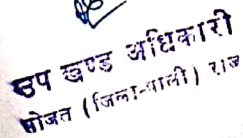 उप खण्ड अधिकारी
सोजत (जिला-पाली) राज